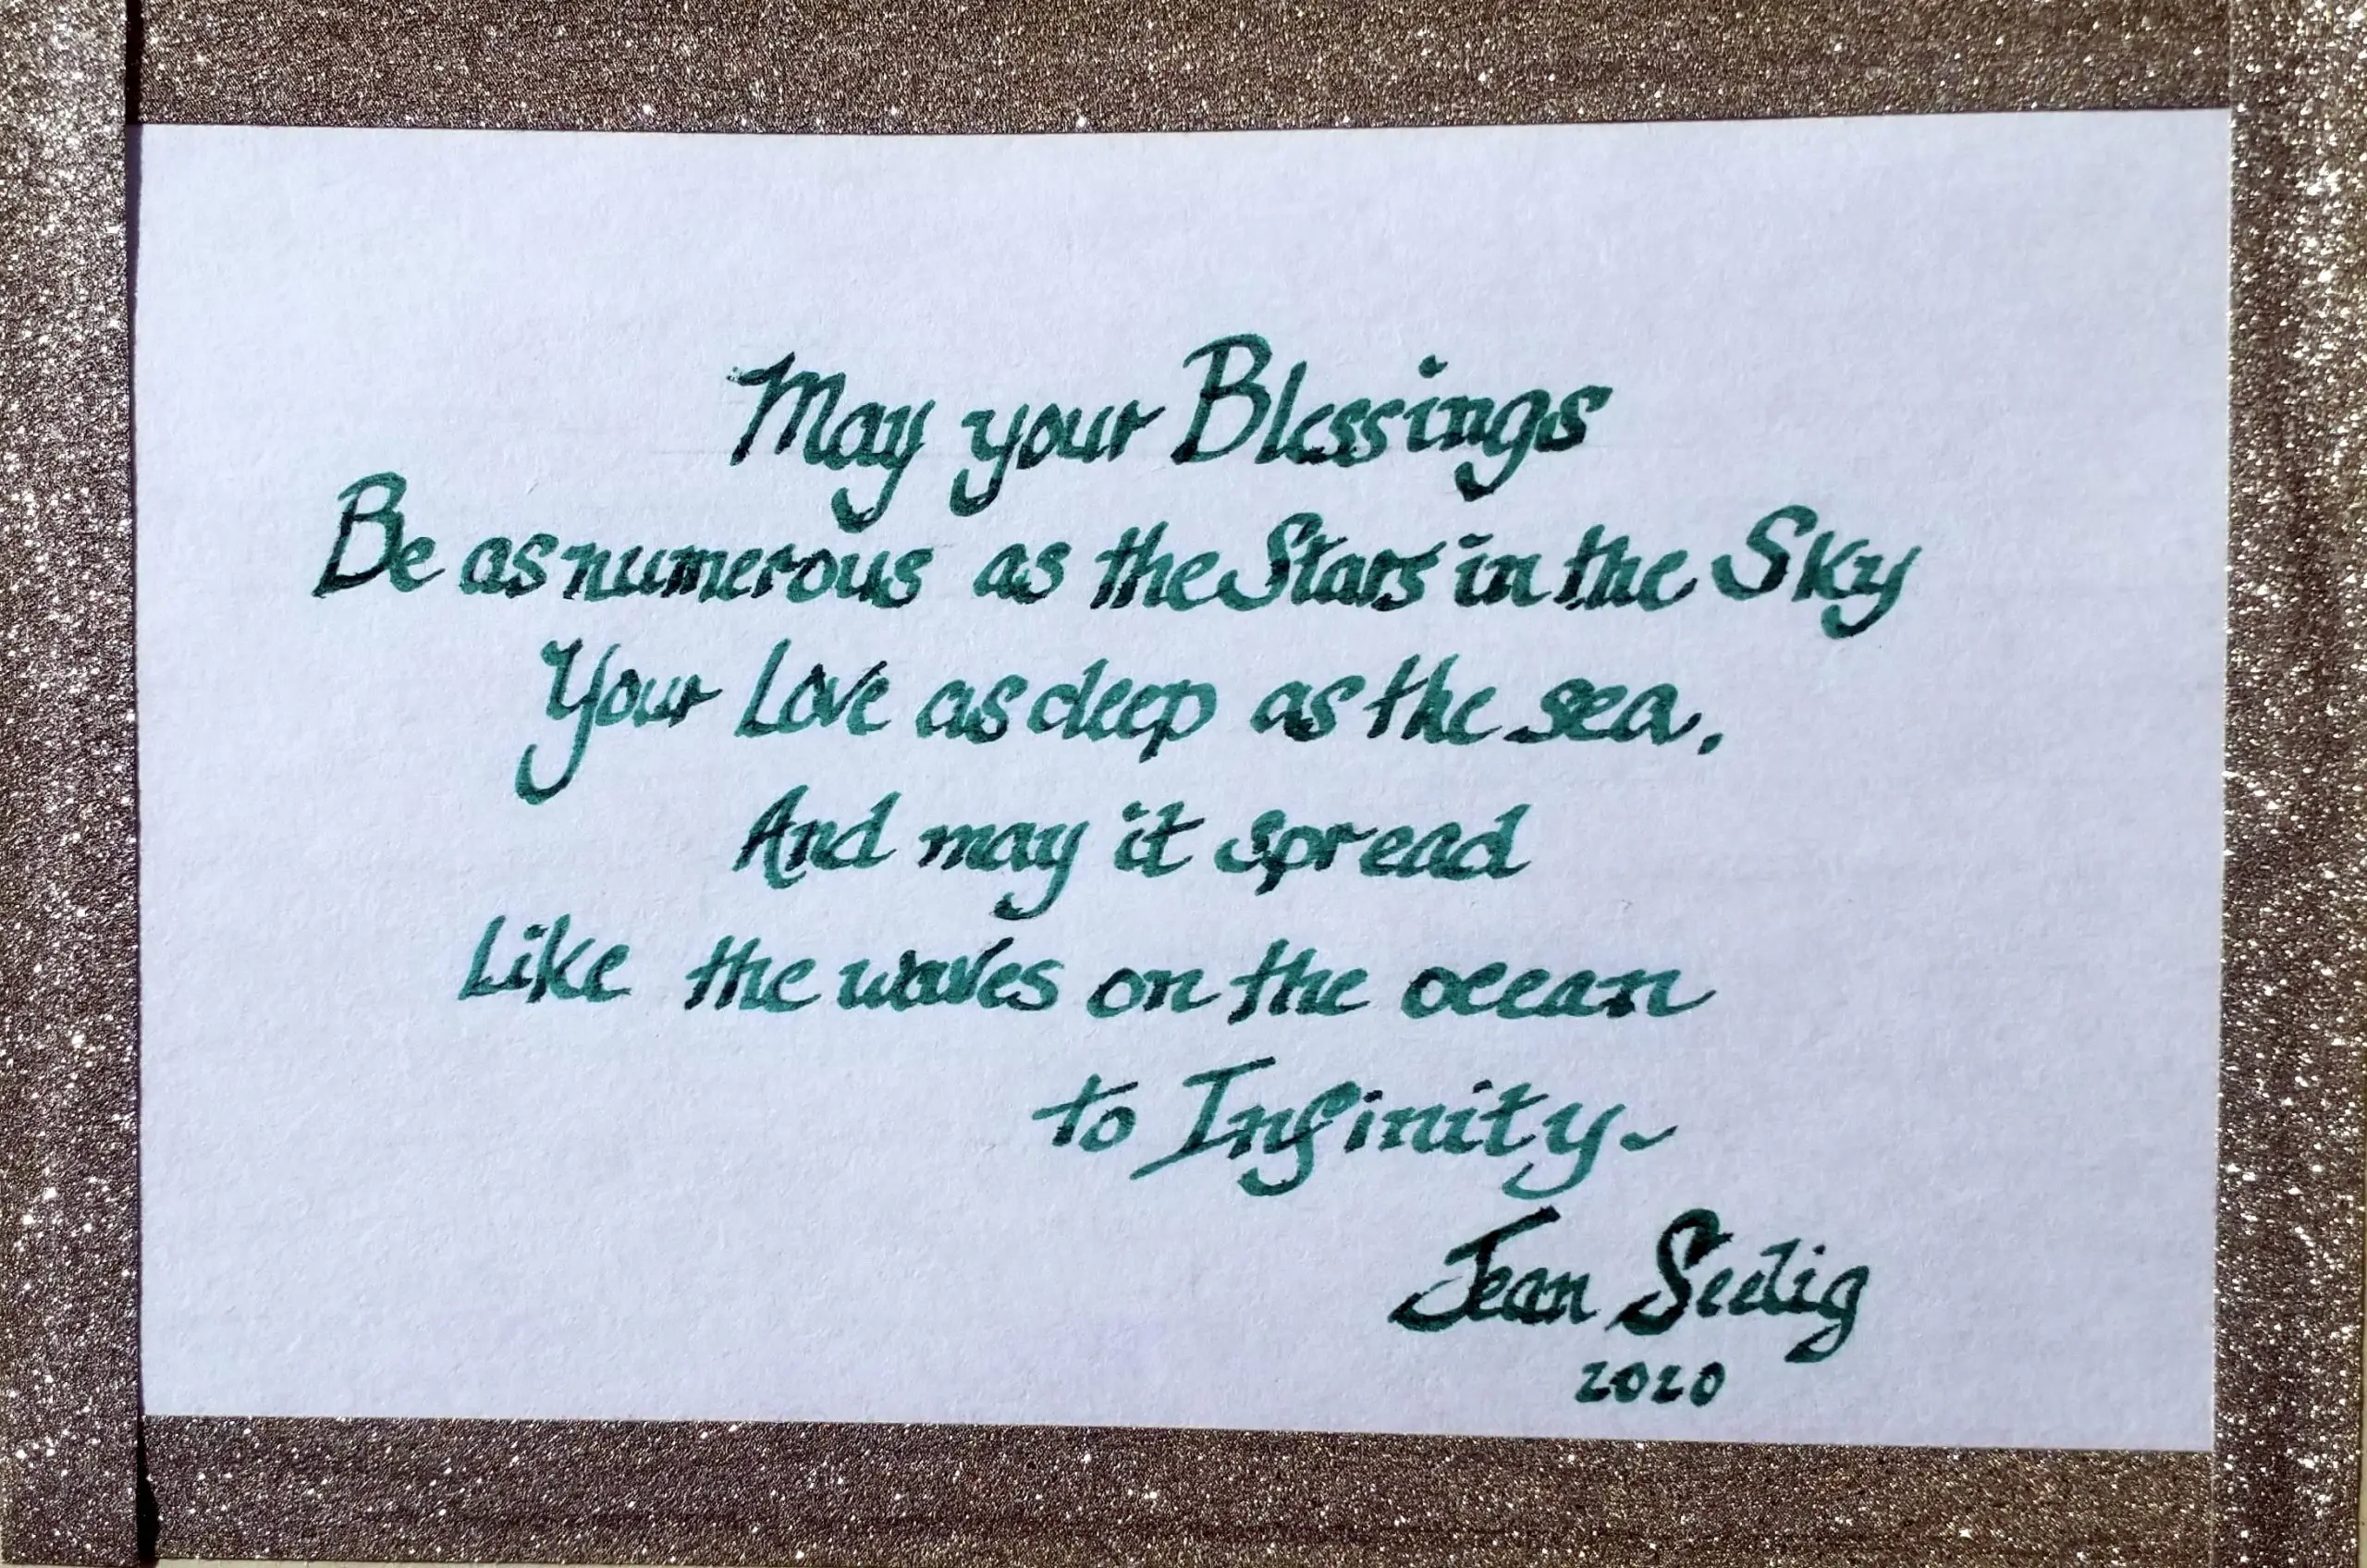 May your Blessings
Be as numerous as the Stars in the Sky
Your Love as deep as the sea.
And may it spread
Like the waves on the ocean
to Infinity~
Jean Seelig
2020